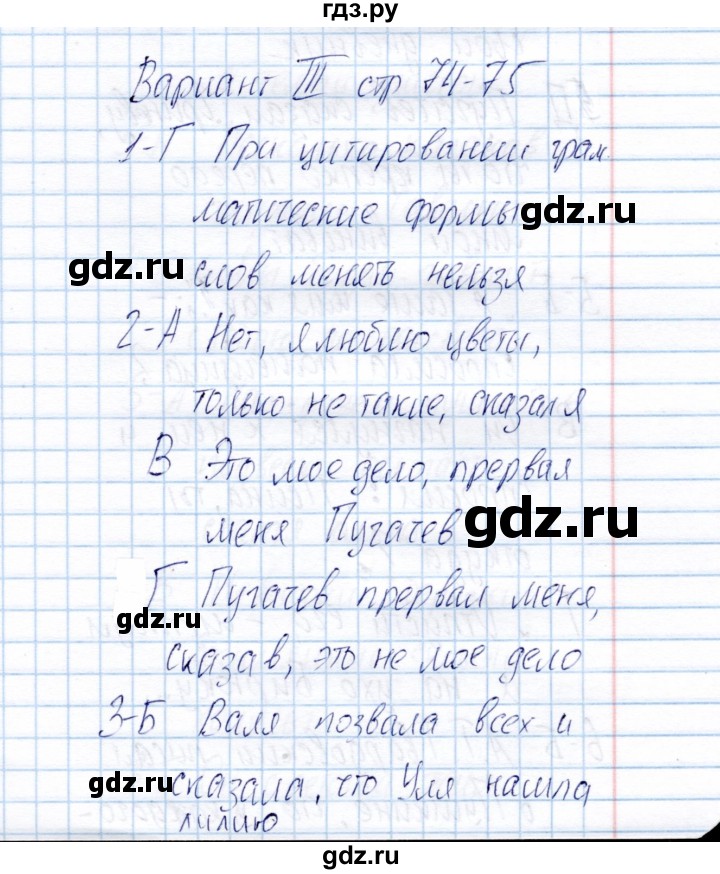 гдз.ру
Вариант III стр 74-75
1-Г При цитировании грам
матические формы
gdz.ru
gdz.ru слов менять нельзя
2-А Нет, я люблю цветы,
только не такие, сказал я
В Это мое дело, прервал
меня Пугачев gdz.ru
Г Пугачев прервал меня,
gdz.ru
сказав, это не мое дело
3-Б Валя позвала всех и
gdz.ru gdz.ru
сказала, что Уля нашла
лилию
gdz.ru
gdz.ru